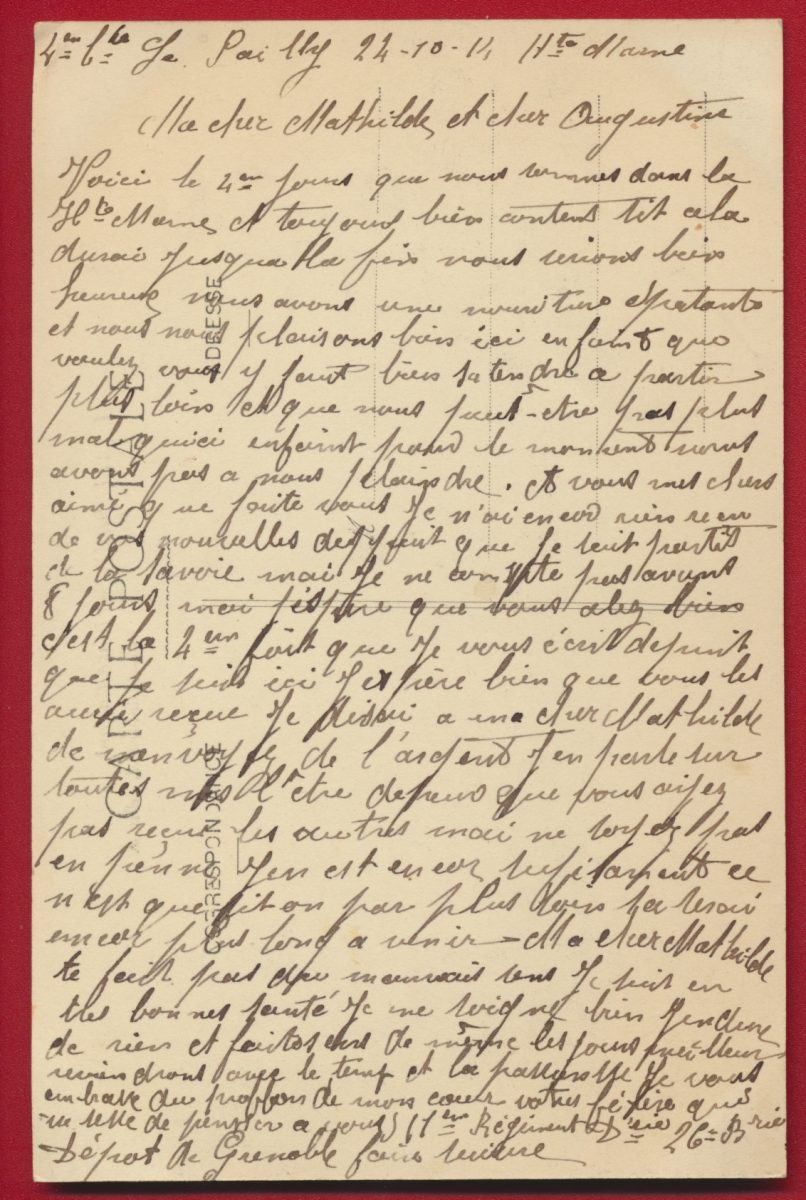 4em Bie Le Pailly 24-10-14 Hte Marne
Ma cher Mathilde, et cher Augustin
Voici le 4em jours que nous sommes dans la
Hte Marne, et toujours bien contents sit cela
durai jusqua la fin nous serions bien
heureux nous avons une nouriture épatante
et nous nous plaisons bien ici enfaint que
voulez vous y faut bien satendre a partir
plus loin et que nous peut-etre pas plus
mal quici enfaint pour le moment nous
avons pas a nous plaindre. Et vous mes chers
aimé que faite vous Je n'ai encor rien recu
de vos nouvelles depuit que Je suit partit
de la Savoie mai Je ne compte pas avant
8 jours mai j'éspére que vous alez bien
c'est la 2em foit que Je vous écrit depuit
que Je suit ici J'espère bien que vous les
aurié reçue Je disai a ma cher Mathilde
de m'envoyez de l'argent J'en parle sur
toutes mes lètre depeur que vous aiyez
pas reçue les autres mai ne soyez pas
en peinne J'en est encor sufisament ce
n'est que sit on par plus loin sa serai
encor plus long a venir - Ma cher Mathilde
te fait pas du mauvais sens Je suit en
tres bonnes santé Je me soigne bien J'en
de rien et faites en de même les jours meilleur
reviendrons avec le temp et la Je vous
embrasse du proffon de mon coeur votre que
ne sesse de penser a vous 11em Régiment D'rie 26e Brie
Dépot de Grenoble faire suivre
CARTE POSTALE
CORRESPONDANCE
ADRESSE